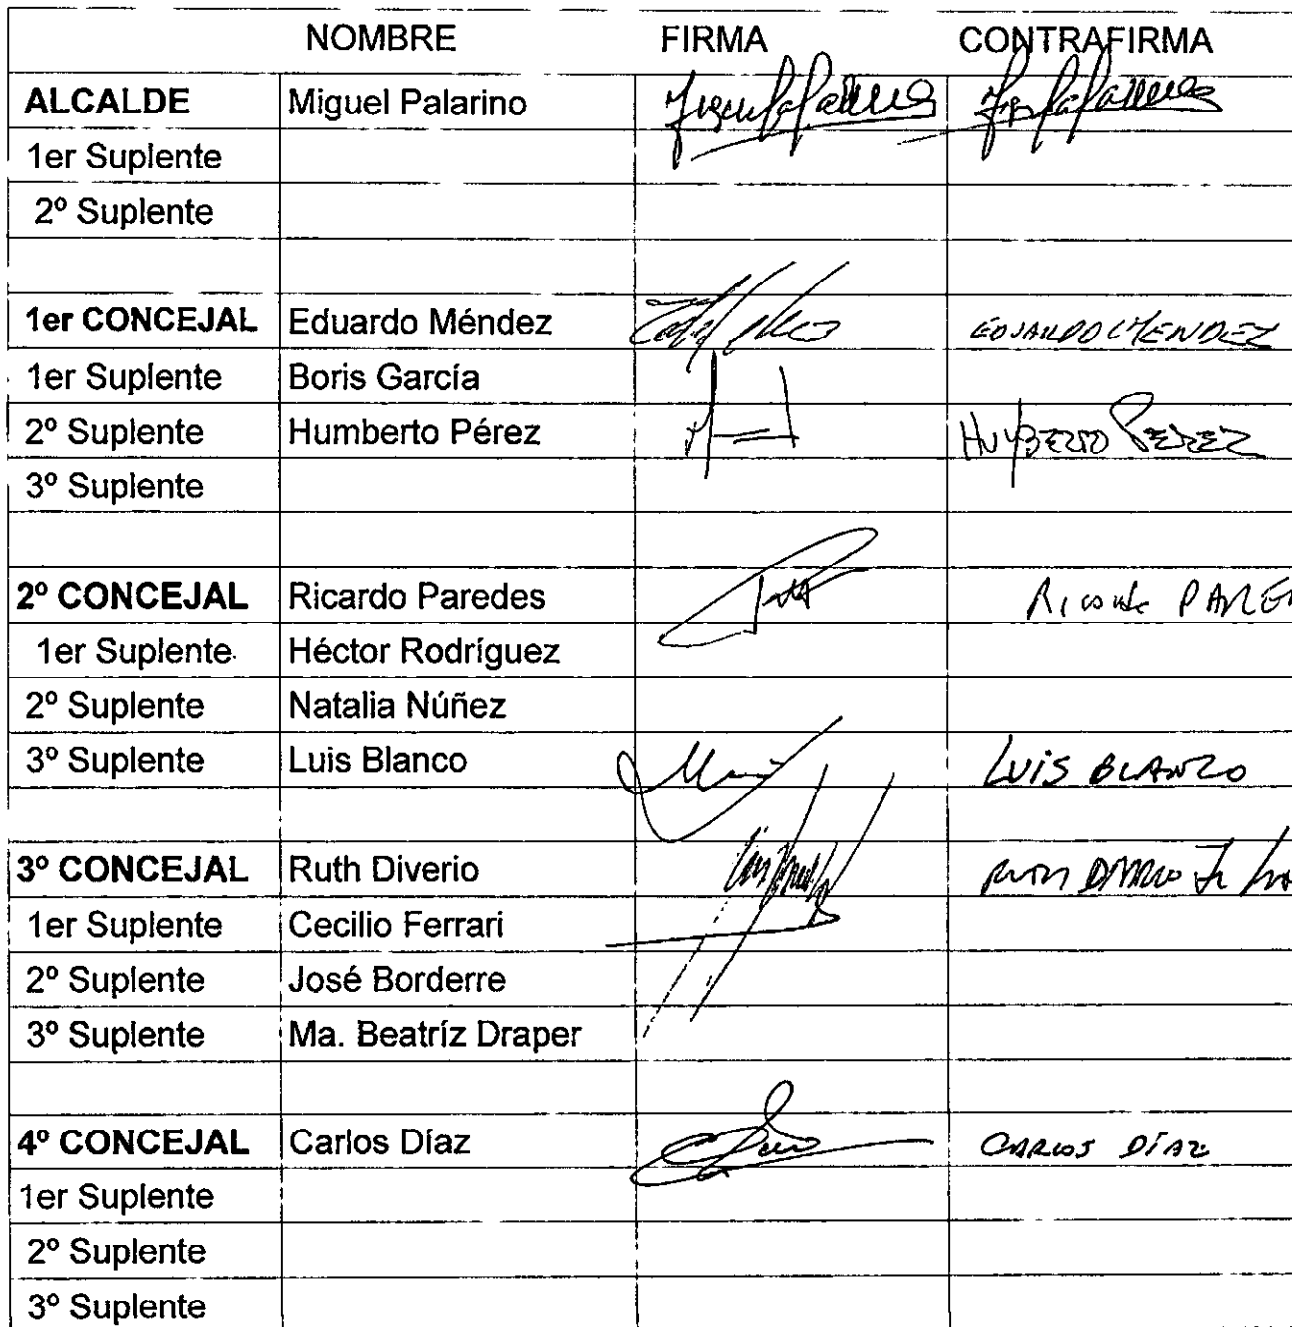 NOMBRE FIRMA CONTRAFIRMA
ALCALDE Miguel Palarino
1er Suplente
2º Suplente
1er CONCEJAL Eduardo Méndez EDUARDO MENDEZ
1er Suplente Boris García
2º Suplente Humberto Pérez HUMBERTO PEREZ
3º Suplente
2º CONCEJAL Ricardo Paredes
1er Suplente Héctor Rodríguez
2º Suplente Natalia Núñez
3º Suplente Luis Blanco LUIS BLANCO
3º CONCEJAL Ruth Diverio
1er Suplente Cecilio Ferrari
2º Suplente José Borderre
3º Suplente Ma. Beatríz Draper
4º CONCEJAL Carlos Díaz CARLOS DÍAZ
1er Suplente
2º Suplente
3º Suplente